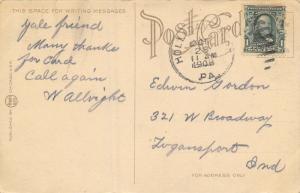 THIS SPACE FOR WRITING MESSAGES
Post Card
Yale friend
Many thanks
for Card
Call again
W Albright
HOLLI
28
11 AM
PA.
1
Edwin Gordon
321 W Broadway
Logansport
Ind
FOR ADDRESS ONLY